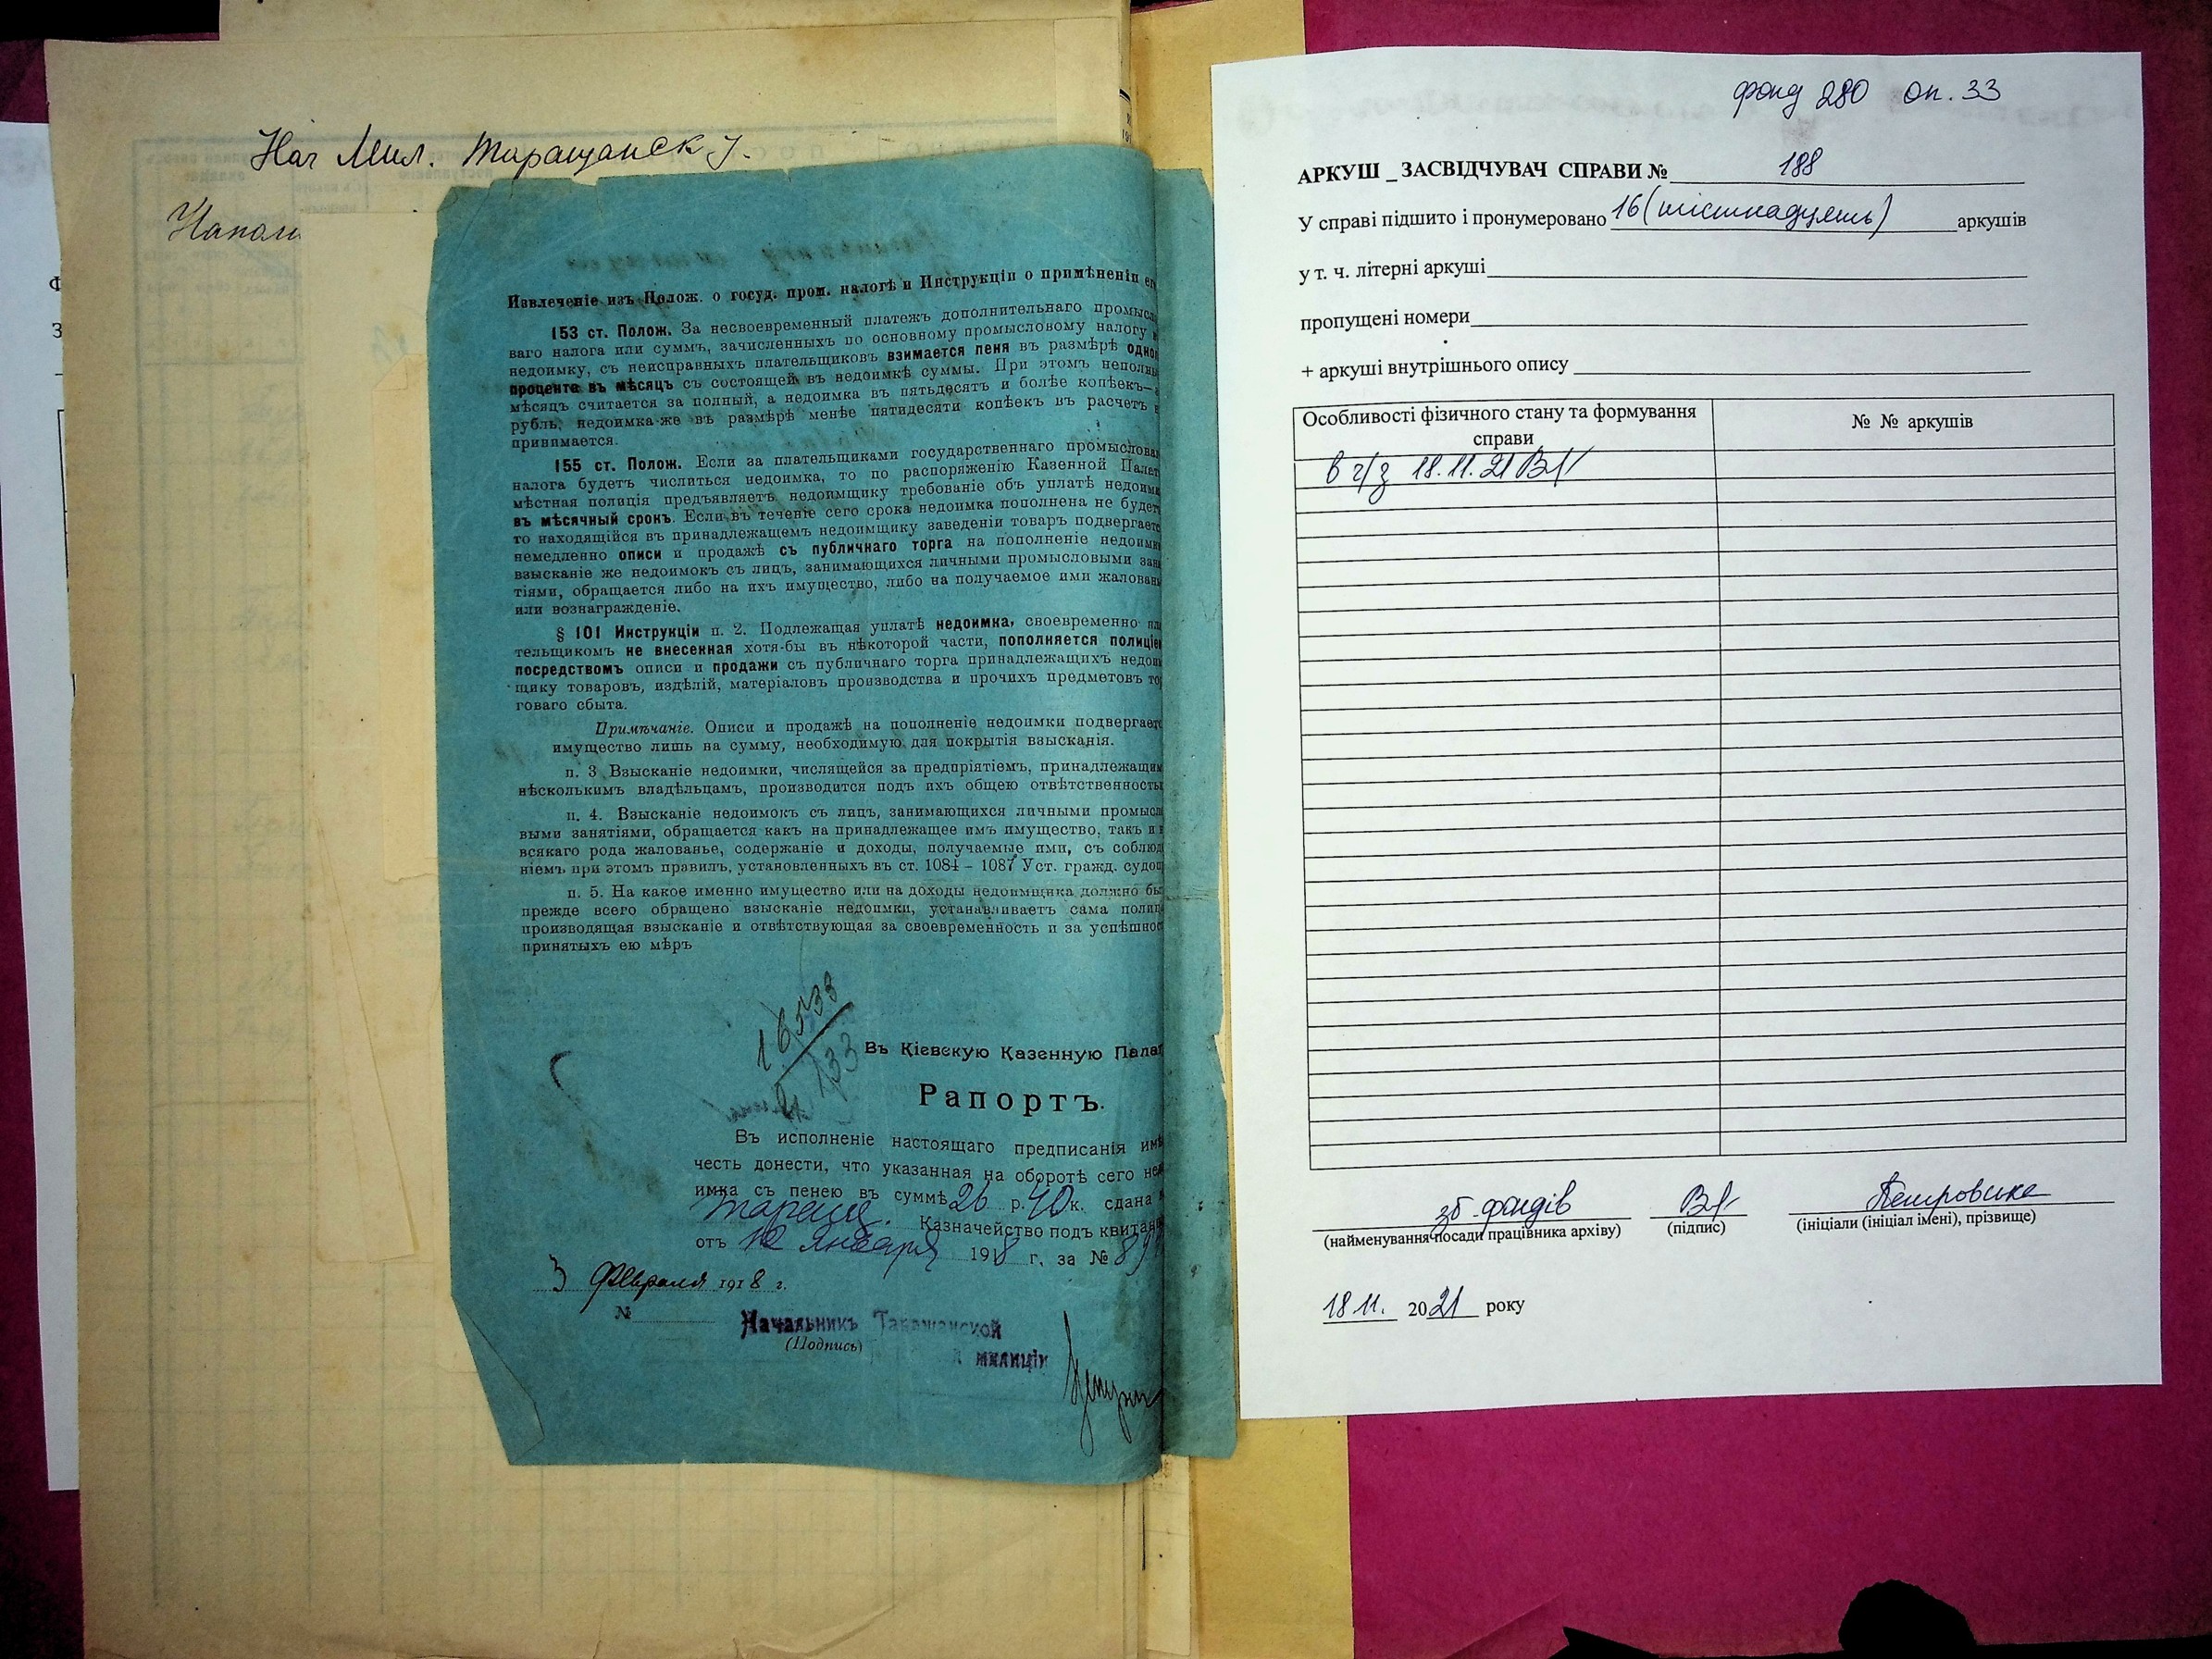 Нач Мил. Таращанск у.
Напом
Извлеченіе изъ Полож. о госуд. пром. налогѣ и Инструкціи о примѣненіи ег
153 ст. Полож. За несвоевременный платежъ дополнительнаго промысл
ваго налога или суммъ, зачисленныхъ по основному промысловому налогу в
недоимку, съ неисправныхъ плательщиковъ взимается пеня въ размѣрѣ одно
процента въ мѣсяцъ съ состоящей въ недоимкѣ суммы. При этомъ неполны
мѣсяцъ считается за полный, а недоимка въ пятьдесятъ и болѣе копѣекъ—
рубль, недоимка-же въ размѣрѣ менѣе пятидесяти копѣекъ въ расчетъ н
принимается.
155 ст. Полож. Если за плательщиками государственнаго промыслова
налога будетъ числиться недоимка, то по распоряженію Казенной Палат
мѣстная полиція предъявляетъ недоимщику требованіе объ уплатѣ недоимк
въ мѣсячный срокъ. Если въ теченіе сего срока недоимка пополнена не будет
то находящійся въ принадлежащемъ недоимщику заведеніи товаръ подвергаетс
немедленно описи и продажѣ съ публичнаго торга на пополненіе недоимк
взысканіе же недоимокъ съ лицъ, занимающихся личными промысловыми заня
тіями, обращается либо на ихъ имущество, либо на получаемое ими жалован
или вознагражденіе.
§ 101 Инструкціи п. 2. Подлежащая уплатѣ недоимка, своевременно пла
тельщикомъ не внесенная хотя-бы въ нѣкоторой части, пополняется полиціе
посредствомъ описи и продажи съ публичнаго торга принадлежащихъ недоим
щику товаровъ, издѣлій, матеріаловъ производства и прочихъ предметовъ тор
говаго сбыта.
Примѣчаніе. Описи и продажѣ на пополненіе недоимки подвергаетс
имущество лишь на сумму, необходимую для покрытія взысканія.
п. 3 Взысканіе недоимки, числящейся за предпріятіемъ, принадлежащим
нѣсколькимъ владѣльцамъ, производится подъ ихъ общею отвѣтственность
п. 4. Взысканіе недоимокъ съ лицъ, занимающихся личными промысл
выми занятіями, обращается какъ на принадлежащее имъ имущество, такъ и н
всякаго рода жалованье, содержаніе и доходы, получаемые ими, съ соблюд
ніемъ при этомъ правилъ, установленныхъ въ ст. 1084 – 1087 Уст. гражд. судоп
п. 5. На какое именно имущество или на доходы недоимщика должно бы
прежде всего обращено взысканіе недоимки, устанавливаетъ сама полиц
производящая взысканіе и отвѣтствующая за своевременность и за успѣшнос
принятыхъ ею мѣръ
16533
133
Въ Кіевскую Казенную Палат
Рапортъ.
Въ исполненіе настоящаго предписанія имѣ
честь донести, что указанная на оборотѣ сего не
имка съ пенею въ суммѣ 26 р. 40 к. сдана
Таращ. Казначейство подъ квитан
отъ 10 января 1918 г. за № 89
3 Февраля 1918 г.
№
Начальникъ Таращанской
(Подпись)
милиціи
фонд 280 оп. 33
АРКУШ _ ЗАСВІДЧУВАЧ СПРАВИ № 188
У справі підшито і пронумеровано 16 (шістнадцять) аркушів
у т. ч. літерні аркуші
пропущені номери
+ аркуші внутрішнього опису
Особливості фізичного стану та формування справи
№ № аркушів
в ч/з 18.11.21
зб. фондів
Петровська
(найменування посади працівника архіву) (підпис) (ініціали (ініціал імені), прізвище)
18 11. 2021 року